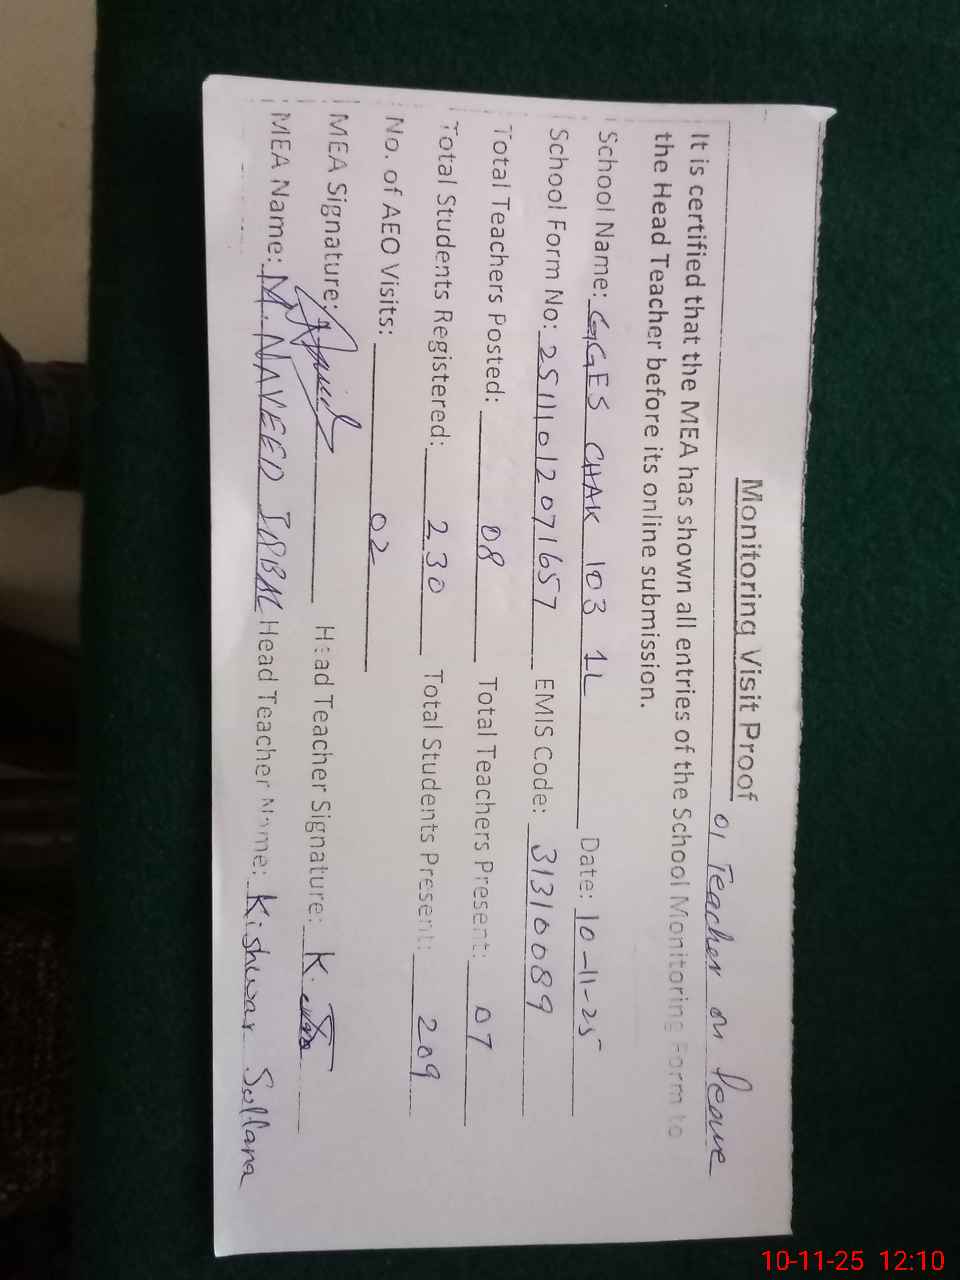 Monitoring Visit Proof
01 Teacher on leave
It is certified that the MEA has shown all entries of the School Monitoring Form to
the Head Teacher before its online submission.
School Name: GGES CHAK 103 1L Date: 10-11-25
School Form No: 25111012071657 EMIS Code: 31310089
Total Teachers Posted: 08 Total Teachers Present: 07
Total Students Registered: 230 Total Students Present: 209
No. of AEO Visits: 02
MEA Signature: Head Teacher Signature: K.
MEA Name: M. NAVEED IQBAL Head Teacher Name: Kishwar Sultana
10-11-25 12:10